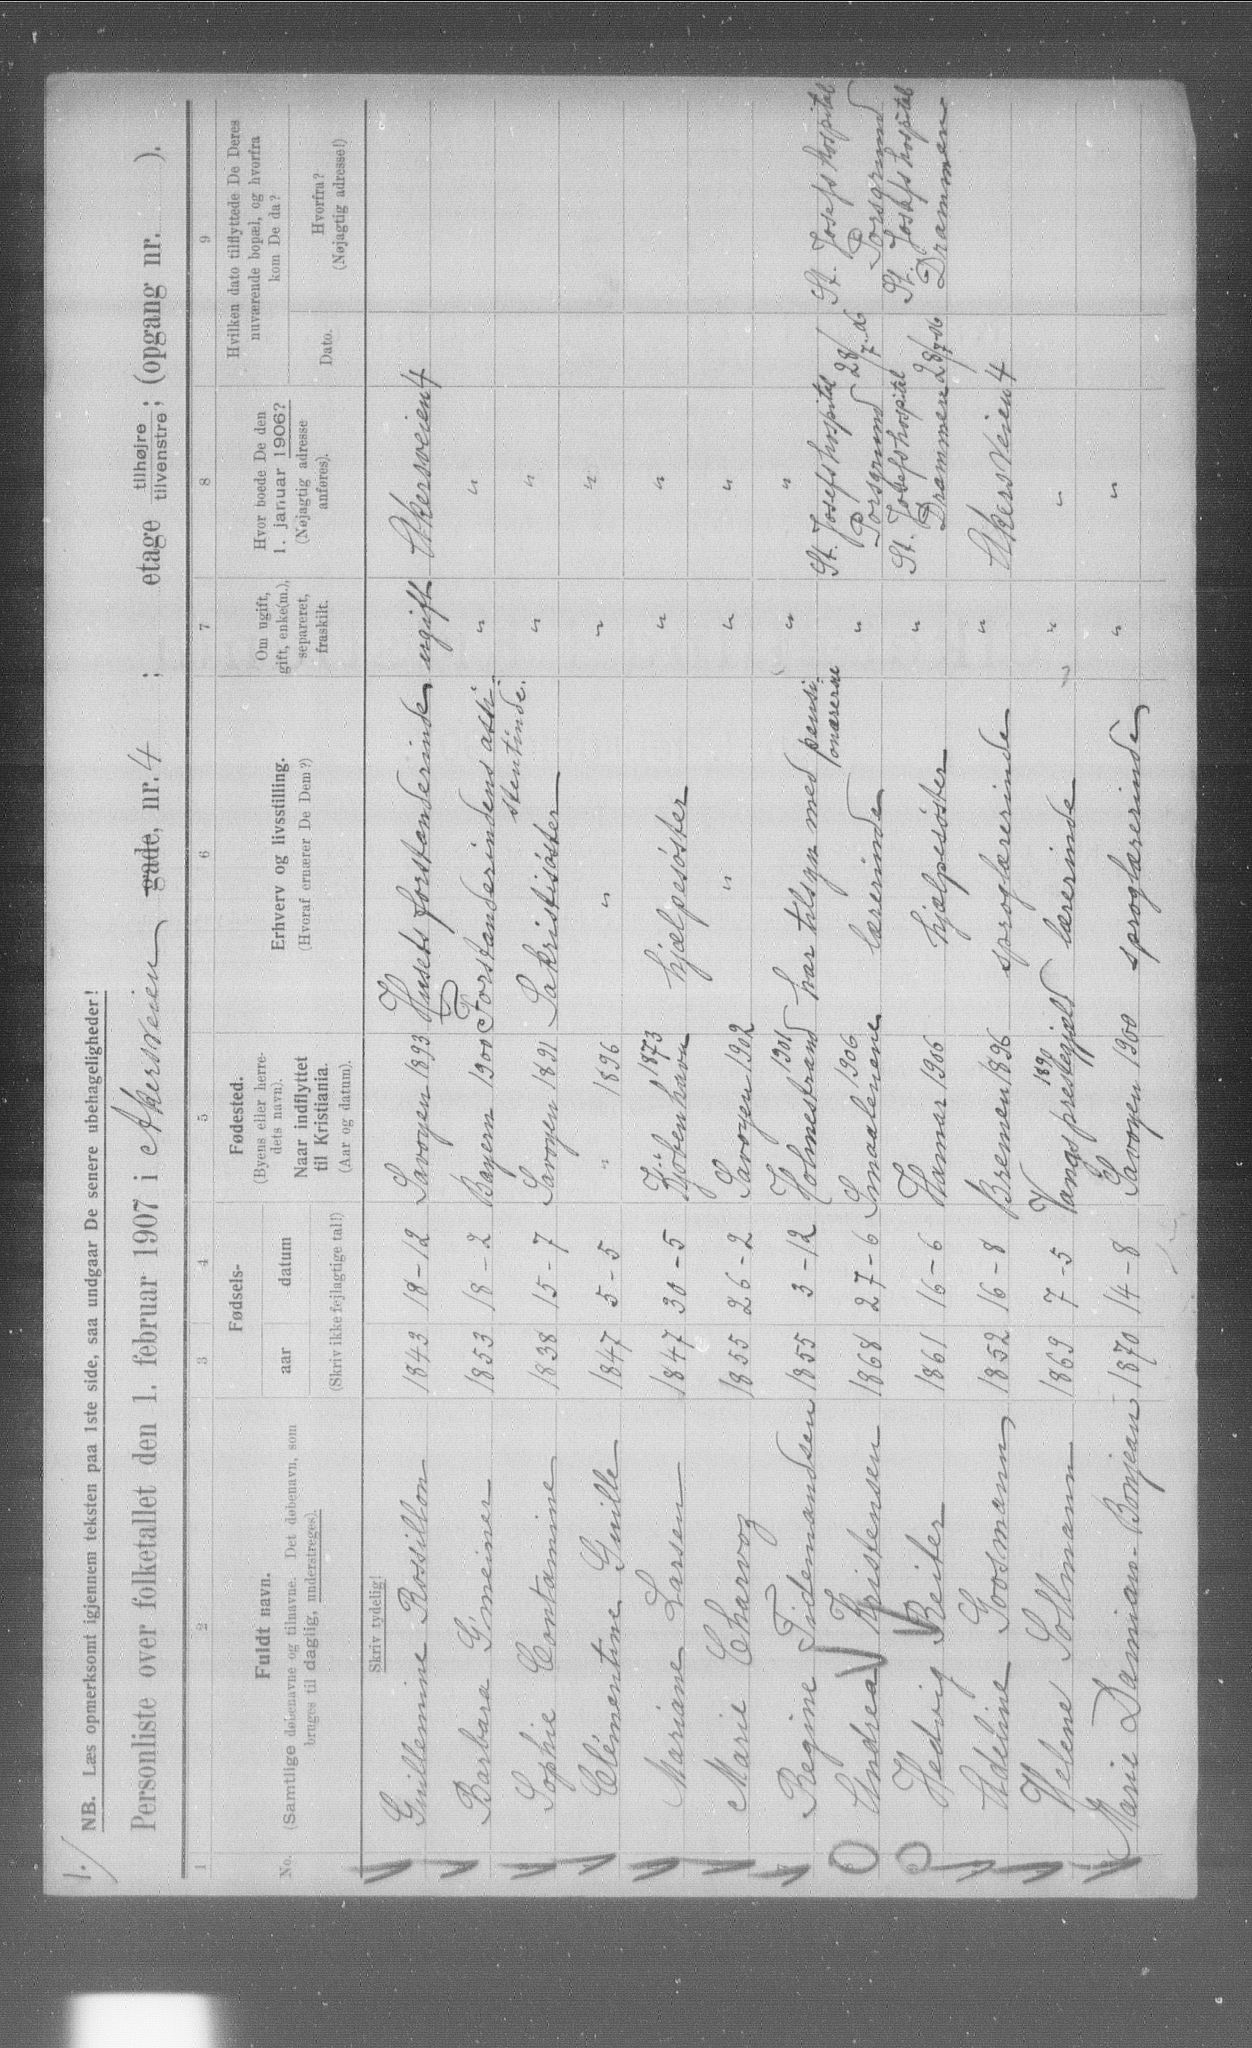 1.
NB. Læs opmerksomt igjennem teksten paa 1ste side, saa undgaar De senere ubehageligheder!
Personliste over folketallet den 1. februar 1907 i Akersveien gade, nr. 4 ; etage tilhøjre tilvenstre; (opgang nr. ).
1 2 3 4 5 6 7 8 9
No. Fuldt navn. (Samtlige døbenavne og tilnavne. Det døbenavn, som bruges til daglig, understreges).
Fødsels- aar datum (Skriv ikke fejlagtige tal!)
Fødested. (Byens eller herredets navn). Naar indflyttet til Kristiania. (Aar og datum).
Erhverv og livsstilling. (Hvoraf ernærer De Dem?)
Om ugift, gift, enke(m.), separeret, fraskilt.
Hvor boede De den 1. januar 1906? (Nøjagtig adresse anføres).
Hvilken dato tilflyttede De Deres nuværende bopæl, og hvorfra kom De da?
Dato. Hvorfra? (Nøjagtig adresse!)
Skriv tydelig!
Guillemine Rosillon 1843 18-12 Savoyen 1893 Husets forstanderinde ugift Akersveien 4
Barbara Gmeiner 1853 18-2 Bayern 1900 Forstanderindens assistentinde. " "
Sophie Contamine 1838 15-7 Savoyen 1891 Sakristisøster " "
Clémentine Guille 1847 5-5 " 1896 " " "
Mariane Larsen 1847 30-5 Kjøbenhavn 1873 hjælpesøster " "
Marie Charvoz 1855 26-2 Savoyen 1902 " " "
Regine Tidemandsen 1855 3-12 Holmestrand 1901 har tilsyn med pensionærerne " "
Andrea Kristensen 1868 27-6 Smaalenene 1906 lærerinde " St. Josefs hospital Porsgrund 28/7-06 St. Josefs hospital Porsgrund
Hedvig Reiter 1861 16-6 Hamar 1906 hjælpesøster " St. Josefs hospital Drammen 28/7-06 St. Josefs hospital Drammen
Adeline Goosmann 1852 16-8 Bremen 1896 sproglærerinde " Akersveien 4
Helene Sollmann 1869 7-5 Vangs prestegjeld 1890 lærerinde " "
Marie Damian-Bonjean 1870 14-8 Savoyen 1900 sproglærerinde " "